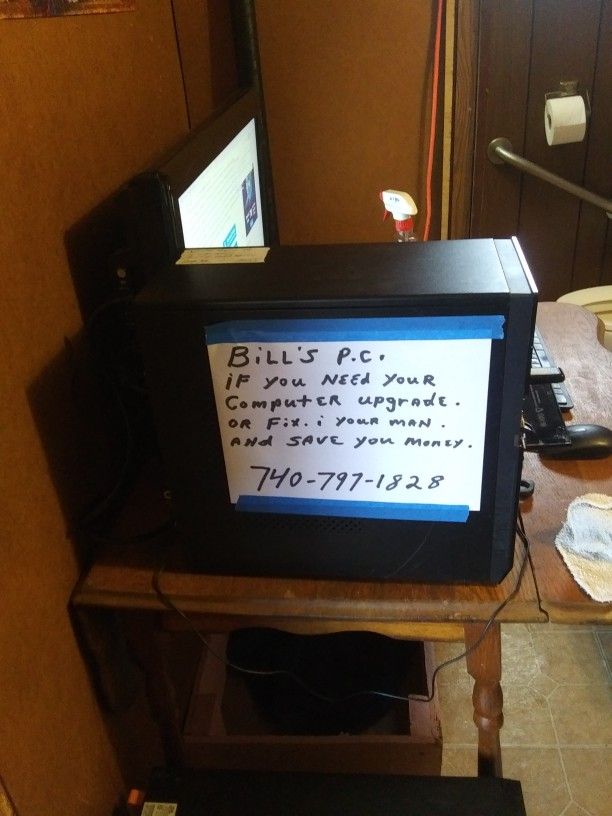 BiLL'S P.C.
iF YOU NEEd YOUR
COMPUtER UPGRADE.
OR Fix. i YOUR MAN.
AND SAVE YOU MONEY.
740-797-1828